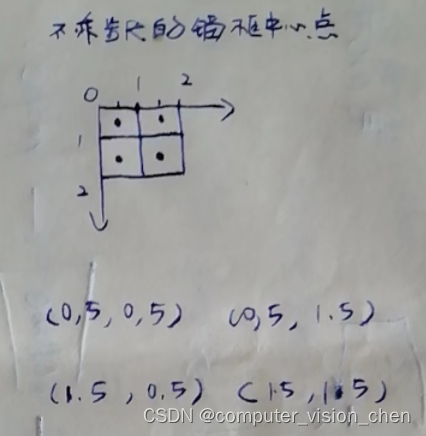 不乘步长的锚框中心点
0 1 2
1
2
(0,5, 0,5) (0,5, 1.5)
(1.5, 0.5) (1.5, 1.5)
CSDN @computer_vision_chen